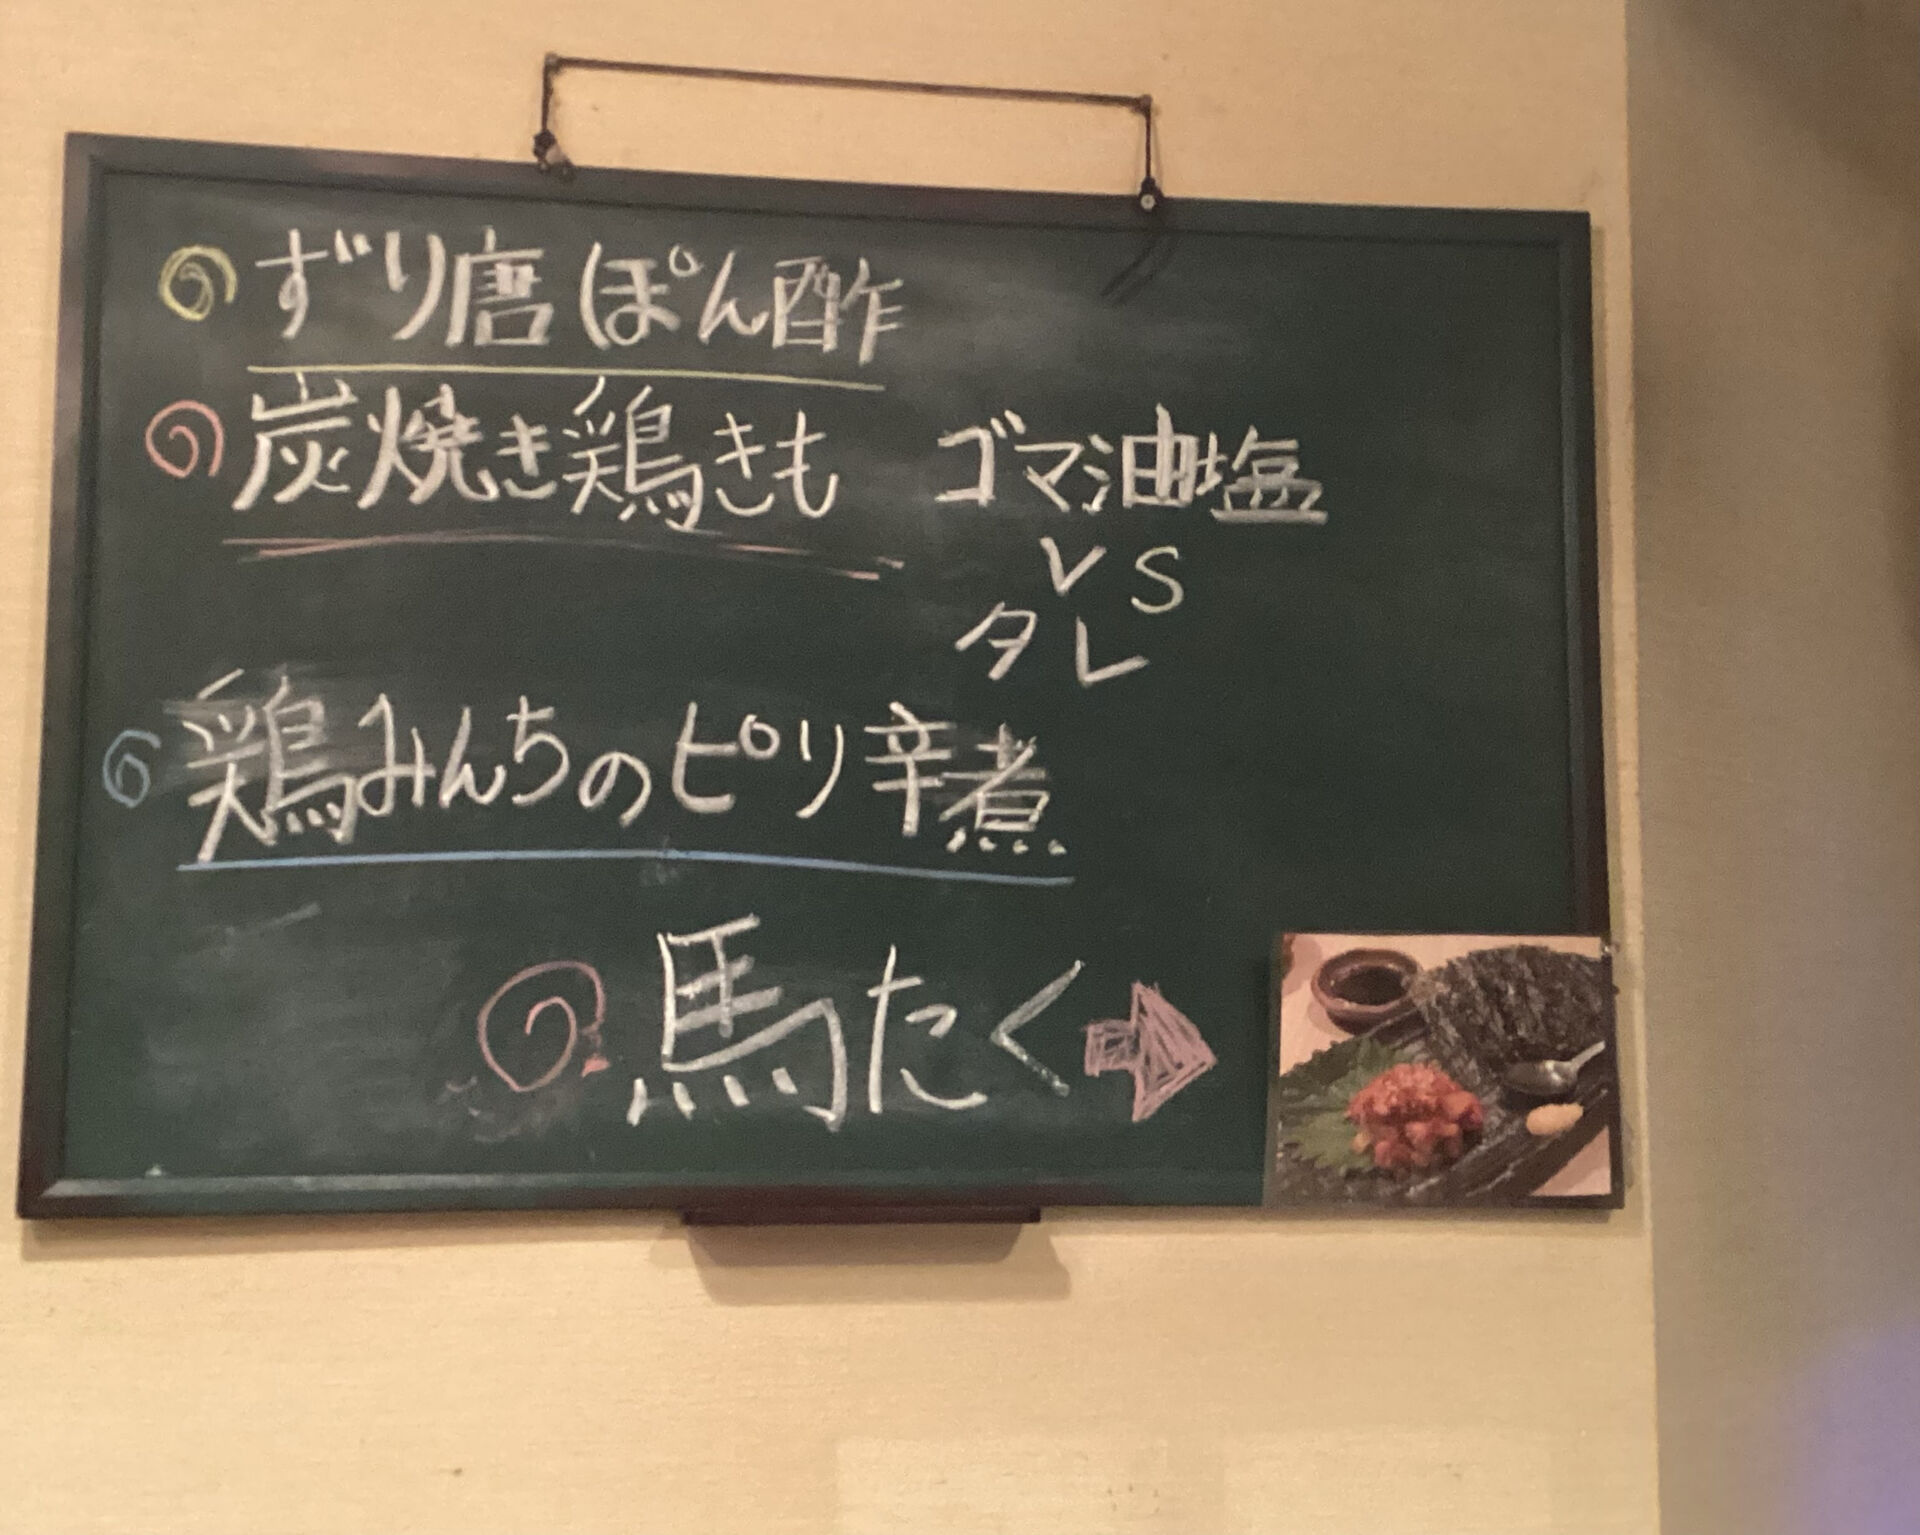 ずり唐ぽん酢
炭焼き鶏きも ゴマ油塩
VS
タレ
鶏みんちのピリ辛煮
馬たく